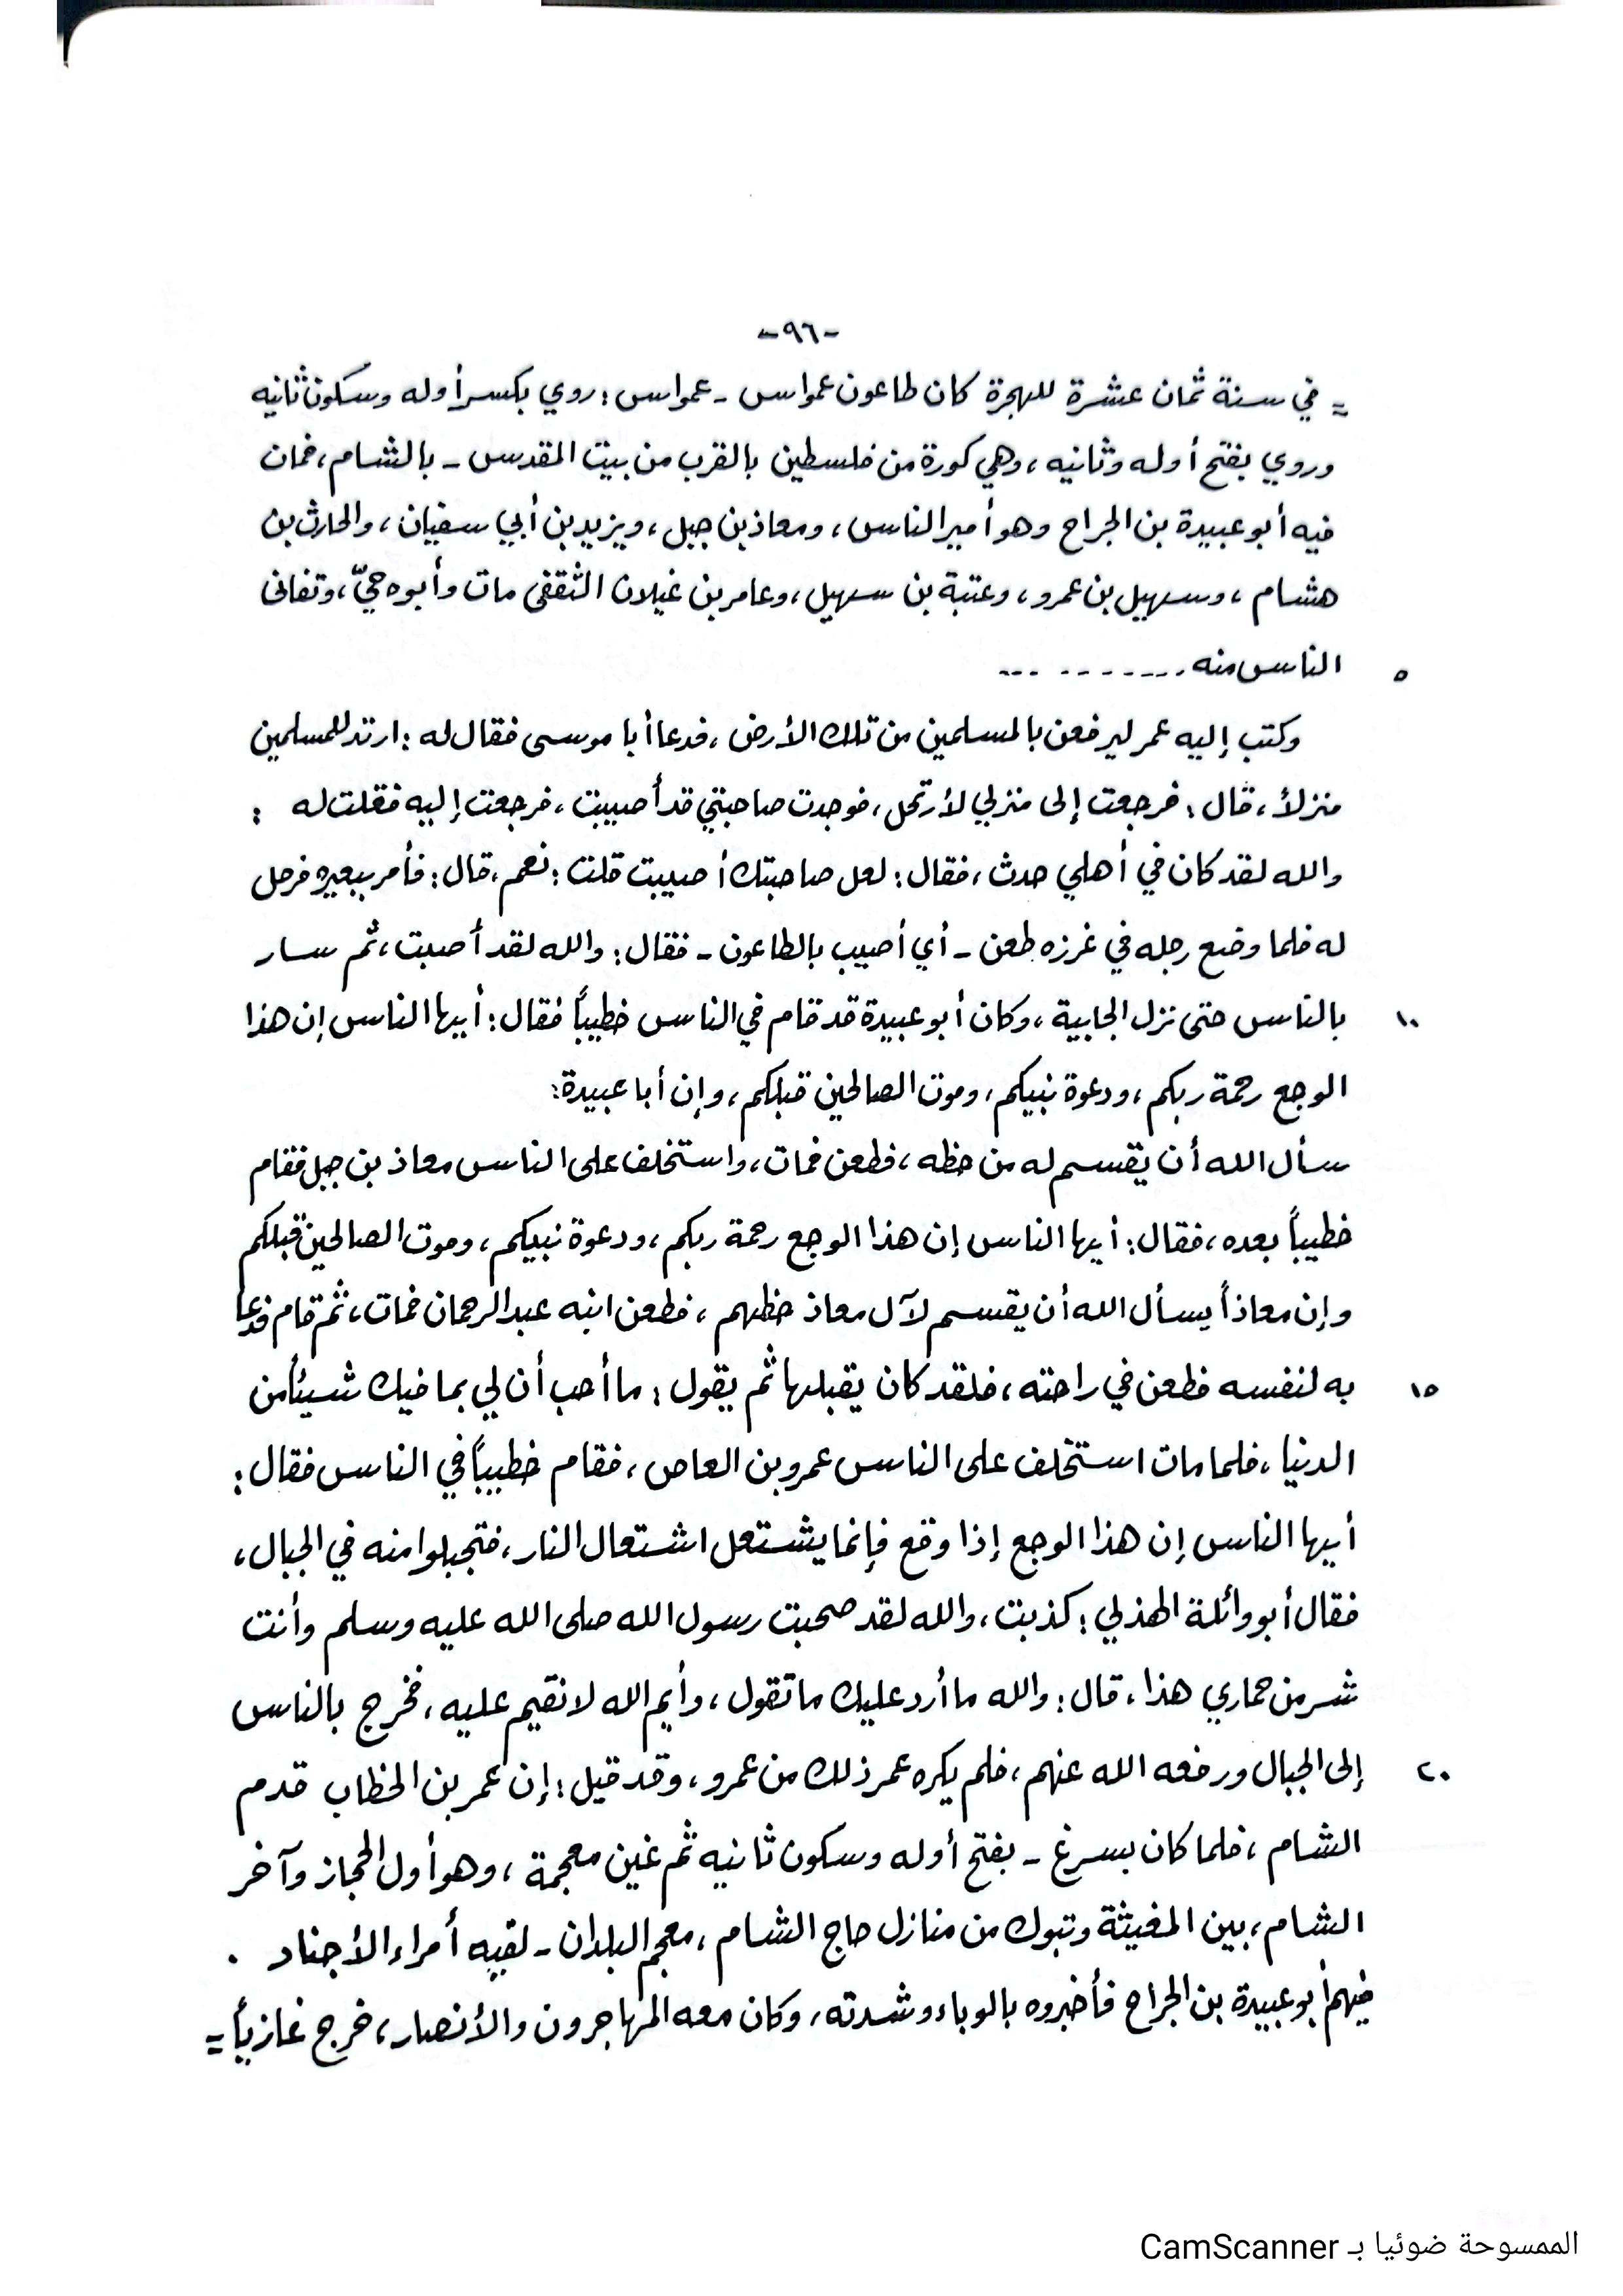 -٩٦-
= في سنة ثمان عشرة للهجرة كان طاعون عمواس - عمواس: روي بكسر أوله وسكون ثانيه
وروي بفتح أوله وثانيه، وهي كورة من فلسطين بالقرب من بيت المقدس - بالشام، فمات
فيه أبو عبيدة بن الجراح وهو أمير الناس، ومعاذ بن جبل، ويزيد بن أبي سفيان، والحارث بن
هشام، وسهيل بن عمرو، وعتبة بن سهيل، وعامر بن غيلان الثقفي مات وأبوه حيّ، وتفانى
٥ الناس منه . . . . . . . . . . .
وكتب إليه عمر ليرفعن بالمسلمين من تلك الأرض، فدعا أبا موسى فقال له: ارتد للمسلمين
منزلاً، قال: فرجعت إلى منزلي لأرتحل، فوجدت صاحبتي قد أصيبت، فرجعت إليه فقلت له :
والله لقد كان في أهلي حدث، فقال: لعل صاحبتك أصيبت قلت: نعم، قال: فأمر ببعيره فرحل
له فلما وضع رجله في غرزه طعن - أي أصيب بالطاعون - فقال: والله لقد أصبت، ثم سار
١٠ بالناس حتى نزل الجابية، وكان أبو عبيدة قد قام في الناس خطيباً فقال: أيها الناس إن هذا
الوجع رحمة ربكم، ودعوة نبيكم، وموت الصالحين قبلكم، وإن أبا عبيدة:
سأل الله أن يقسم له من حظه، فطعن فمات، واستخلف على الناس معاذ بن جبل فقام
خطيباً بعده، فقال: أيها الناس إن هذا الوجع رحمة ربكم، ودعوة نبيكم، وموت الصالحين قبلكم
وإن معاذاً يسأل الله أن يقسم لآل معاذ حظهم، فطعن ابنه عبد الرحمان فمات، ثم قام فدعا
١٥ به لنفسه فطعن في راحته، فلقد كان يقبلها ثم يقول: ما أحب أن لي بما فيك شيئاً من
الدنيا، فلما مات استخلف على الناس عمرو بن العاص، فقام خطيباً في الناس فقال:
أيها الناس إن هذا الوجع إذا وقع فإنما يشتعل اشتعال النار، فتجبلوا منه في الجبال،
فقال أبو وائلة الهذلي: كذبت، والله لقد صحبت رسول الله صلى الله عليه وسلم وأنت
شر من حماري هذا، قال: والله ما أرد عليك ما تقول، وأيم الله لا نقيم عليه، فخرج بالناس
٢٠ إلى الجبال ورفعه الله عنهم، فلم يكره عمر ذلك من عمرو، وقد قيل: إن عمر بن الخطاب قدم
الشام، فلما كان بسرغ - بفتح أوله وسكون ثانيه ثم غين معجمة، وهو أول الحجاز وآخر
الشام، بين المغيثة وتبوك من منازل حاج الشام، معجم البلدان - لقيه أمراء الأجناد .
فيهم أبو عبيدة بن الجراح فأخبروه بالوباء وشدته، وكان معه المهاجرون والأنصار، خرج غازياً =
الممسوحة ضوئيا بـ CamScanner